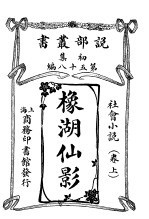 說部叢書
初集
第五十八編
社會小說（卷上）
橡湖仙影
上海商務印書館發行